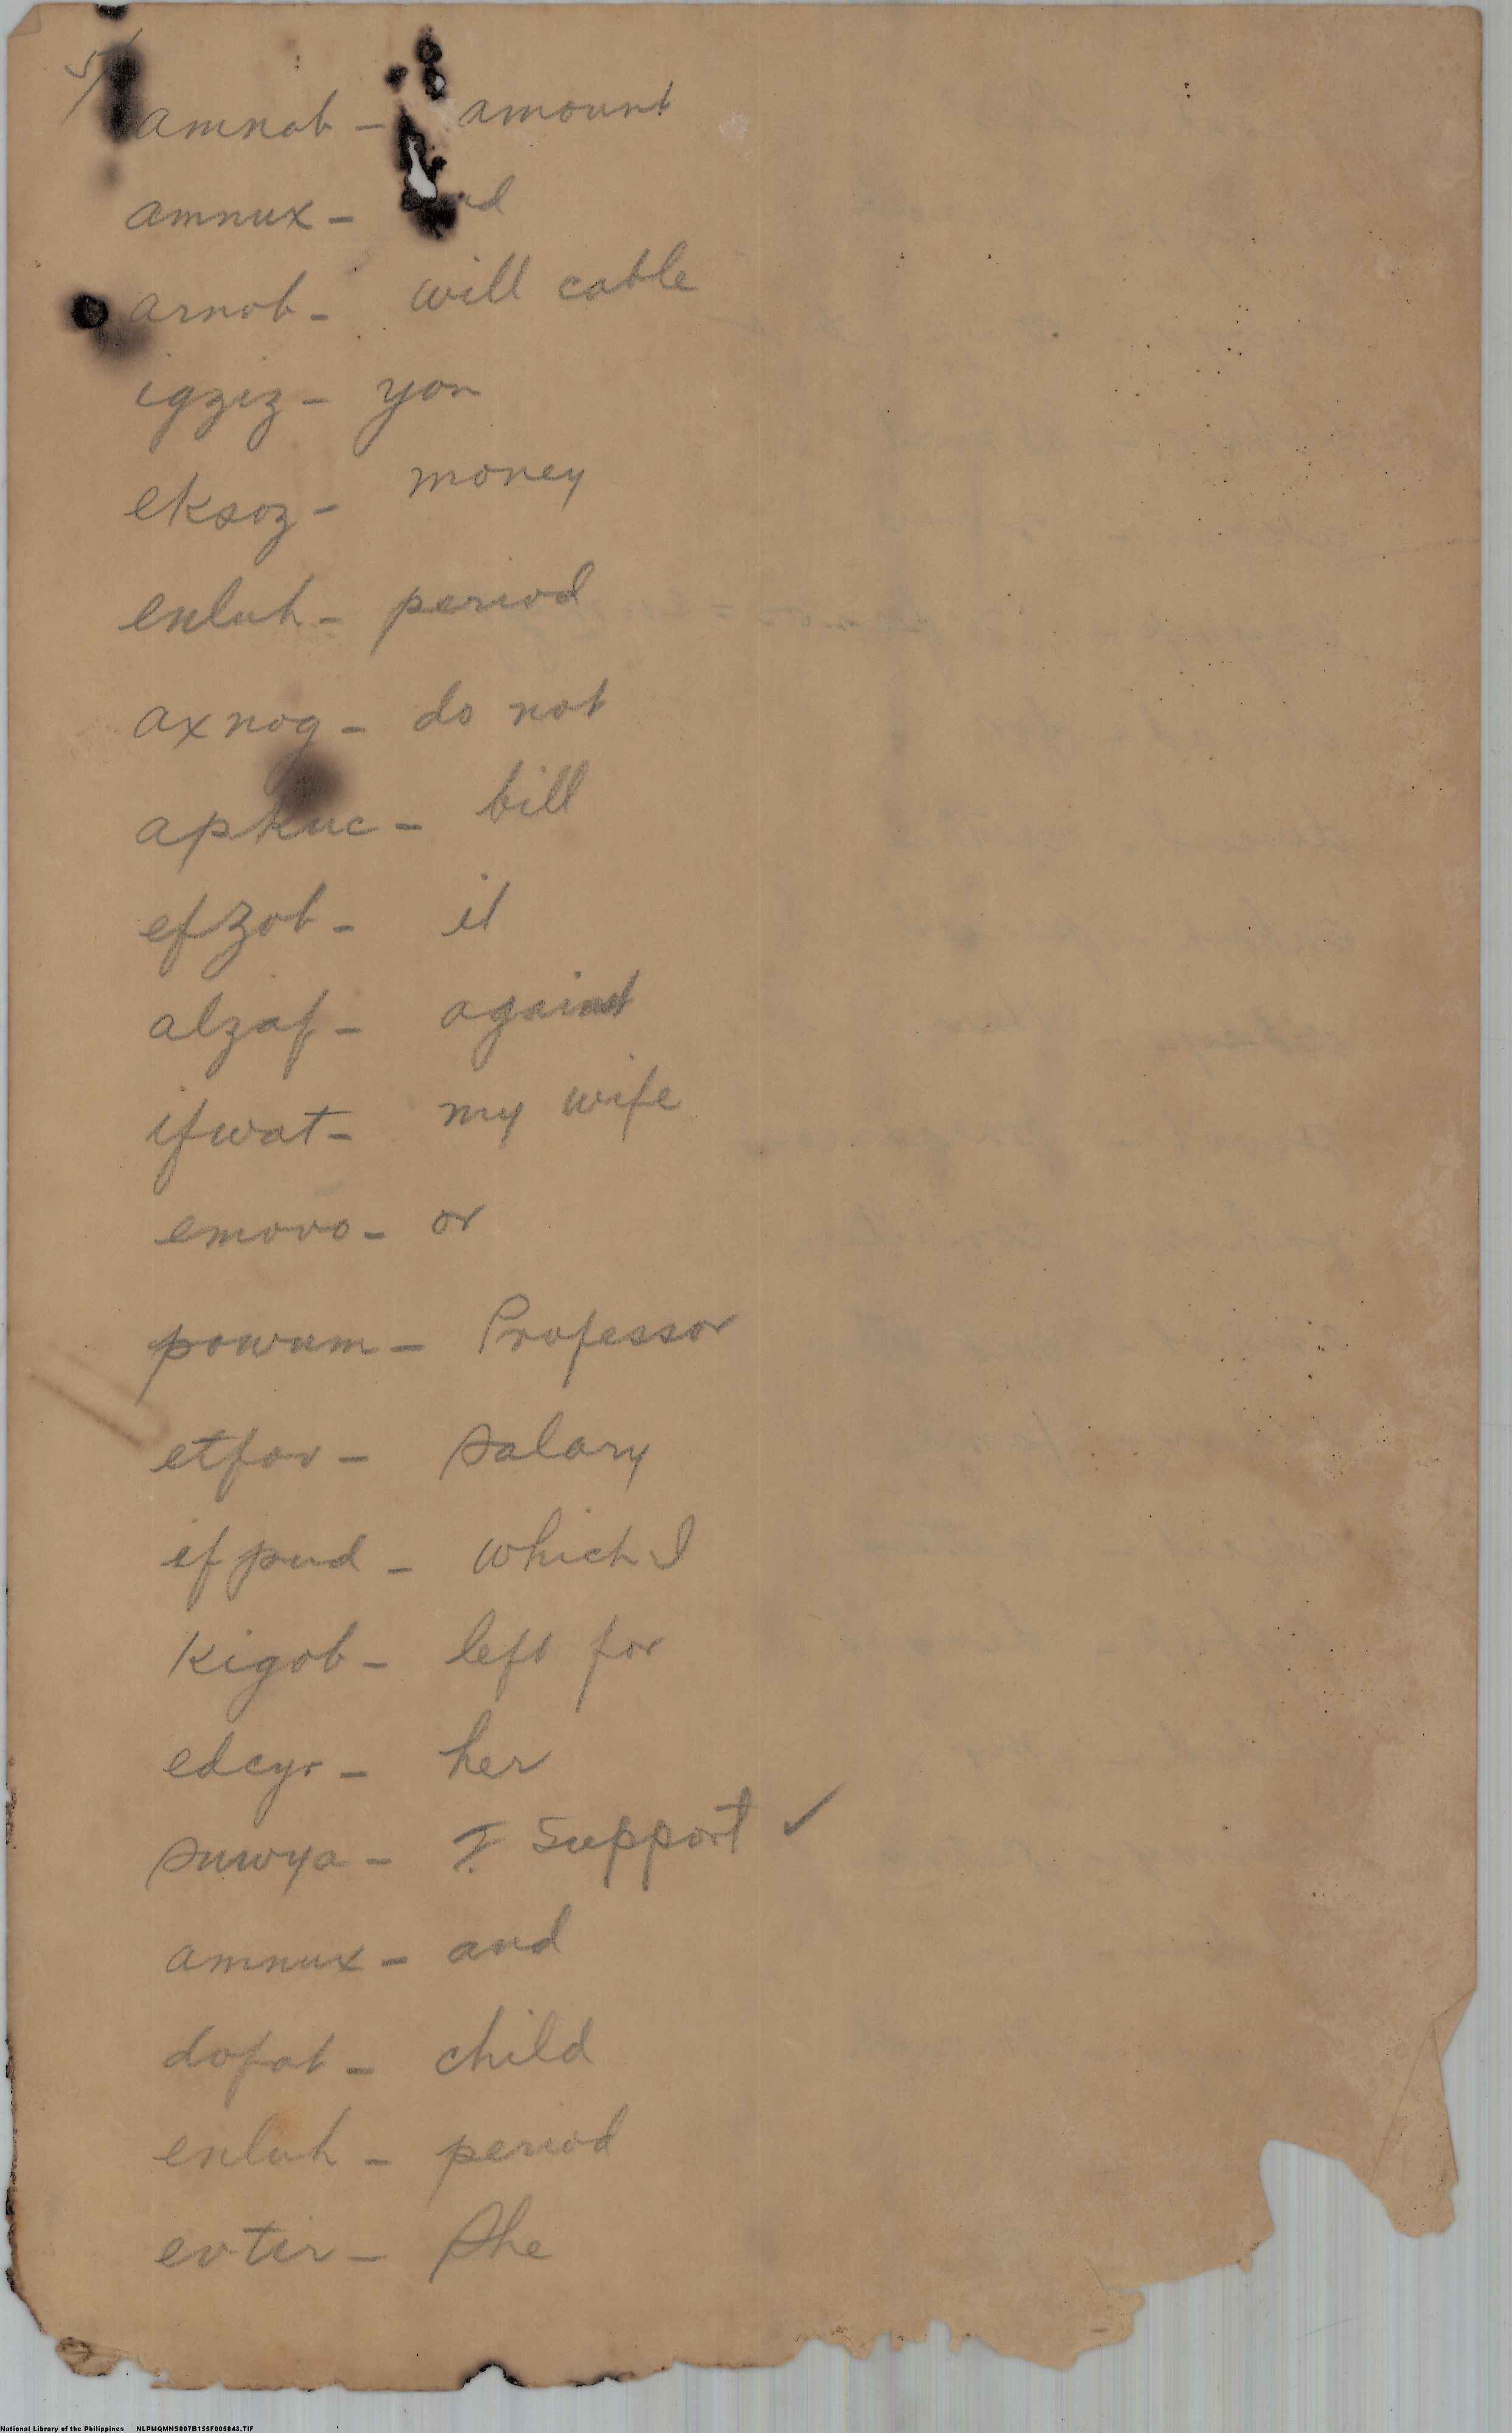 5/
amnob - amount
amnux - nd
arnob - will cable
igziz - you
eksoz - money
enluh - period
axnog - do not
apkuc - bill
efzob - it
alzaf - against
ifwat - my wife
emovo - or
powum - Professor
etfov - salary
ifpud - which I
kigob - left for
edcyr - her
suwya - ? Support ✓
amnux - and
dofab - child
enluh - period
evtir - She
National Library of the Philippines NLPMQMNS007B155F005043.TIF